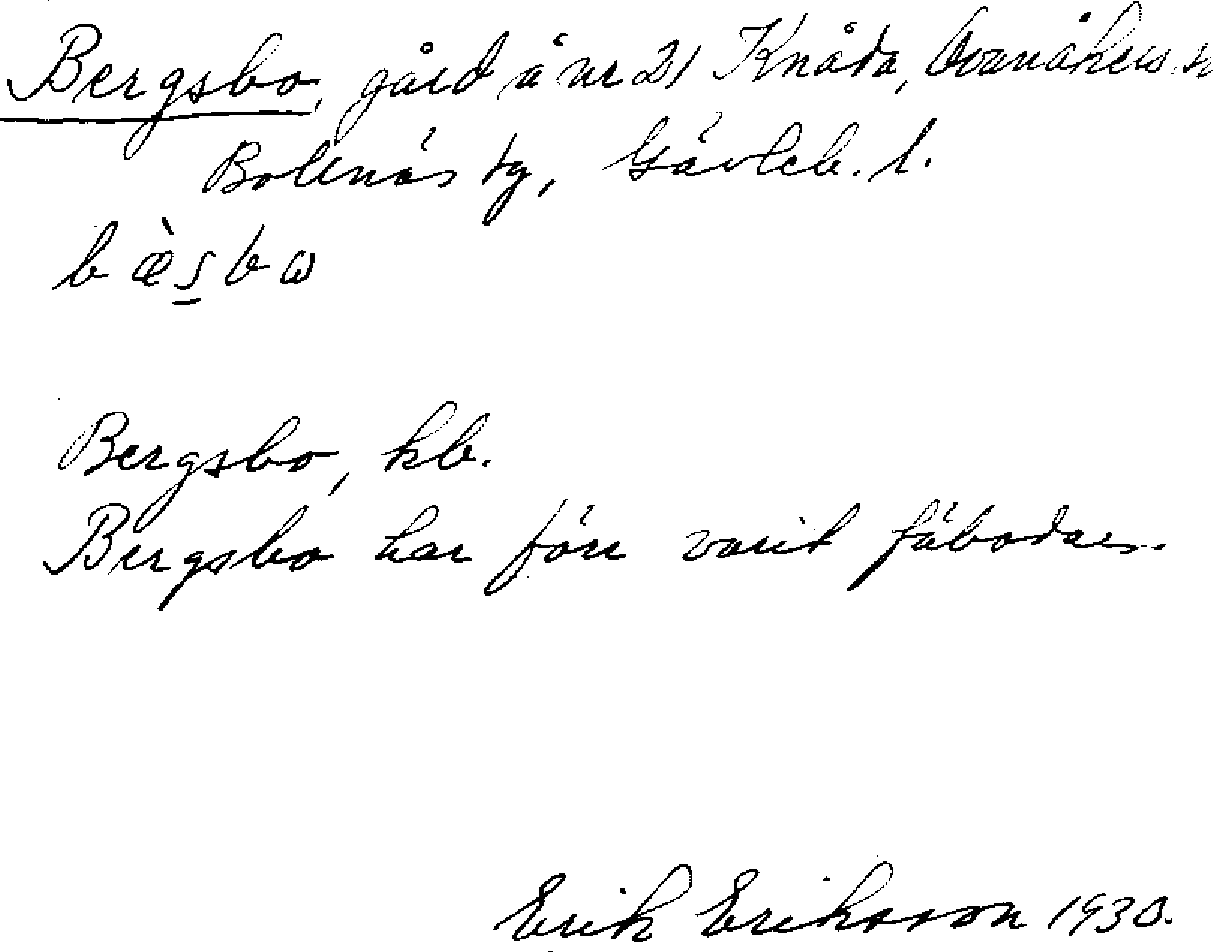 Bergsbo, gård å nr 21 Knåda, Ovanåkers s
Bollnäs tg, Gävleb. l.
b æ̀ s̠ b ω
Bergsbo, kb.
Bergsbo har förr varit fäbodar.
Erik Eriksson 1930.